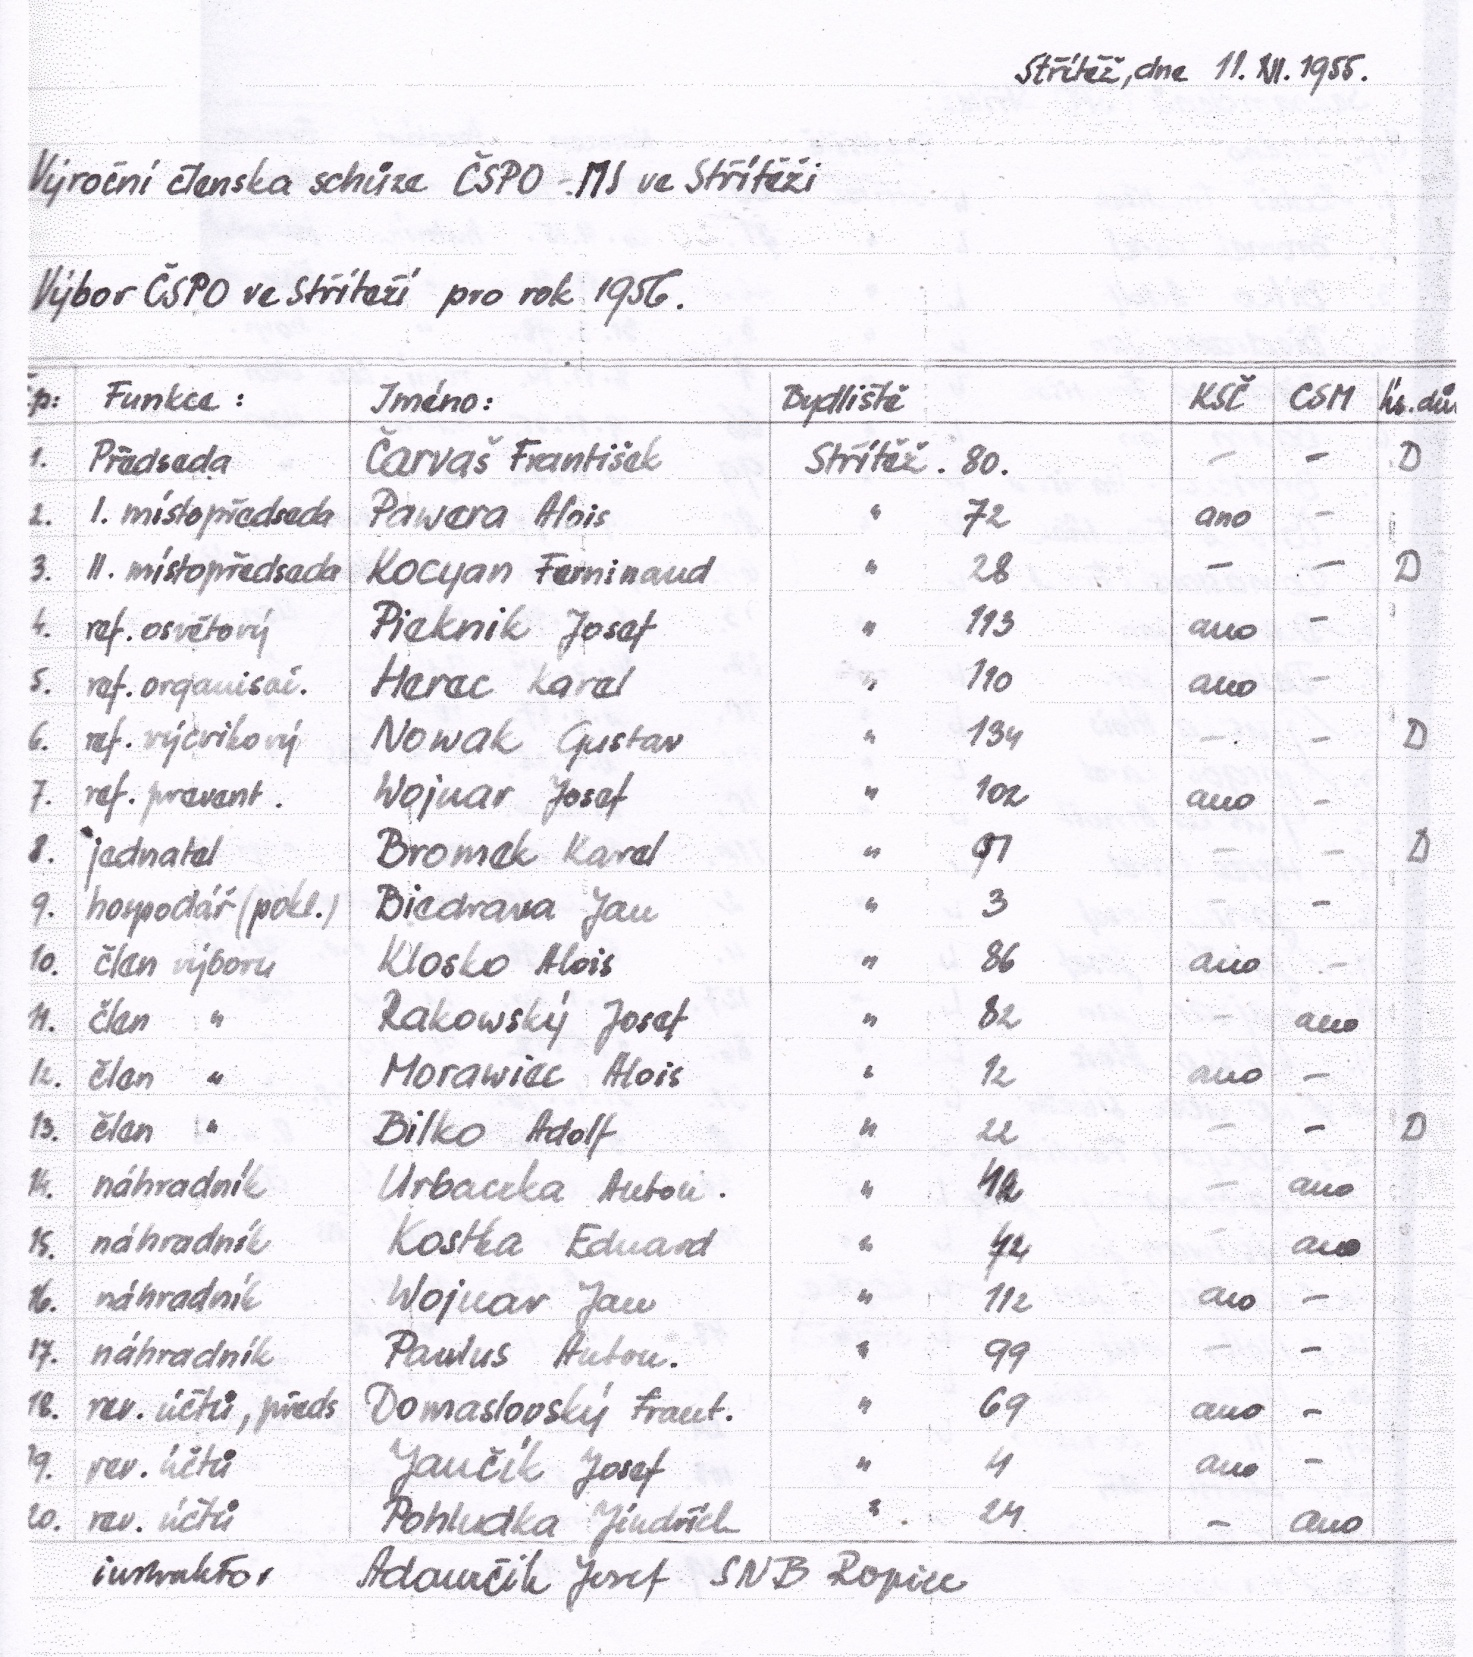 Střítěž, dne 11. XII. 1955.
Výroční členska schůze ČSPO - MS ve Střítěži
Výbor ČSPO ve Stříteží pro rok 1956.
Funkce: Jméno: Bydliště KSČ ČSM
1. Předseda Čarvaš František Střítěž. 80. – – D
2. I. místopředseda Pawera Alois " 72 ano –
3. II. místopředseda Kocyan Ferninaud " 28 – – D
4. ref. osvětový Pieknik Josef " 113 ano –
5. ref. organisač. Herec Karel " 110 ano –
6. ref. výcvikový Nowak Gustav " 134 – – D
7. ref. prevent. Wojnar Josef " 102 ano –
8. jednatel Bromek Karel " 91 – – D
9. hospodář (pokl.) Biedrava Jan " 3 –
10. člen výboru Klosko Alois " 86 ano –
11. člen " Rakowský Josef " 82 – ano
12. člen " Morawiec Alois " 12 ano –
13. člen " Bilko Adolf " 22 – – D
14. náhradník Urbaczka Anton. " – ano
15. náhradník Kostka Eduard " – ano
16. náhradník Wojnar Jan " 112 ano –
17. náhradník Pawlus Anton. " 99 – –
18. rev. účtů, předs Domaslovský Frant. " 69 ano –
19. rev. účtů Jančík Josef " 4 ano –
20. rev. účtů Pohludka Jindřich " 24 – ano
instruktor Adamčík Josef SNB Ropice